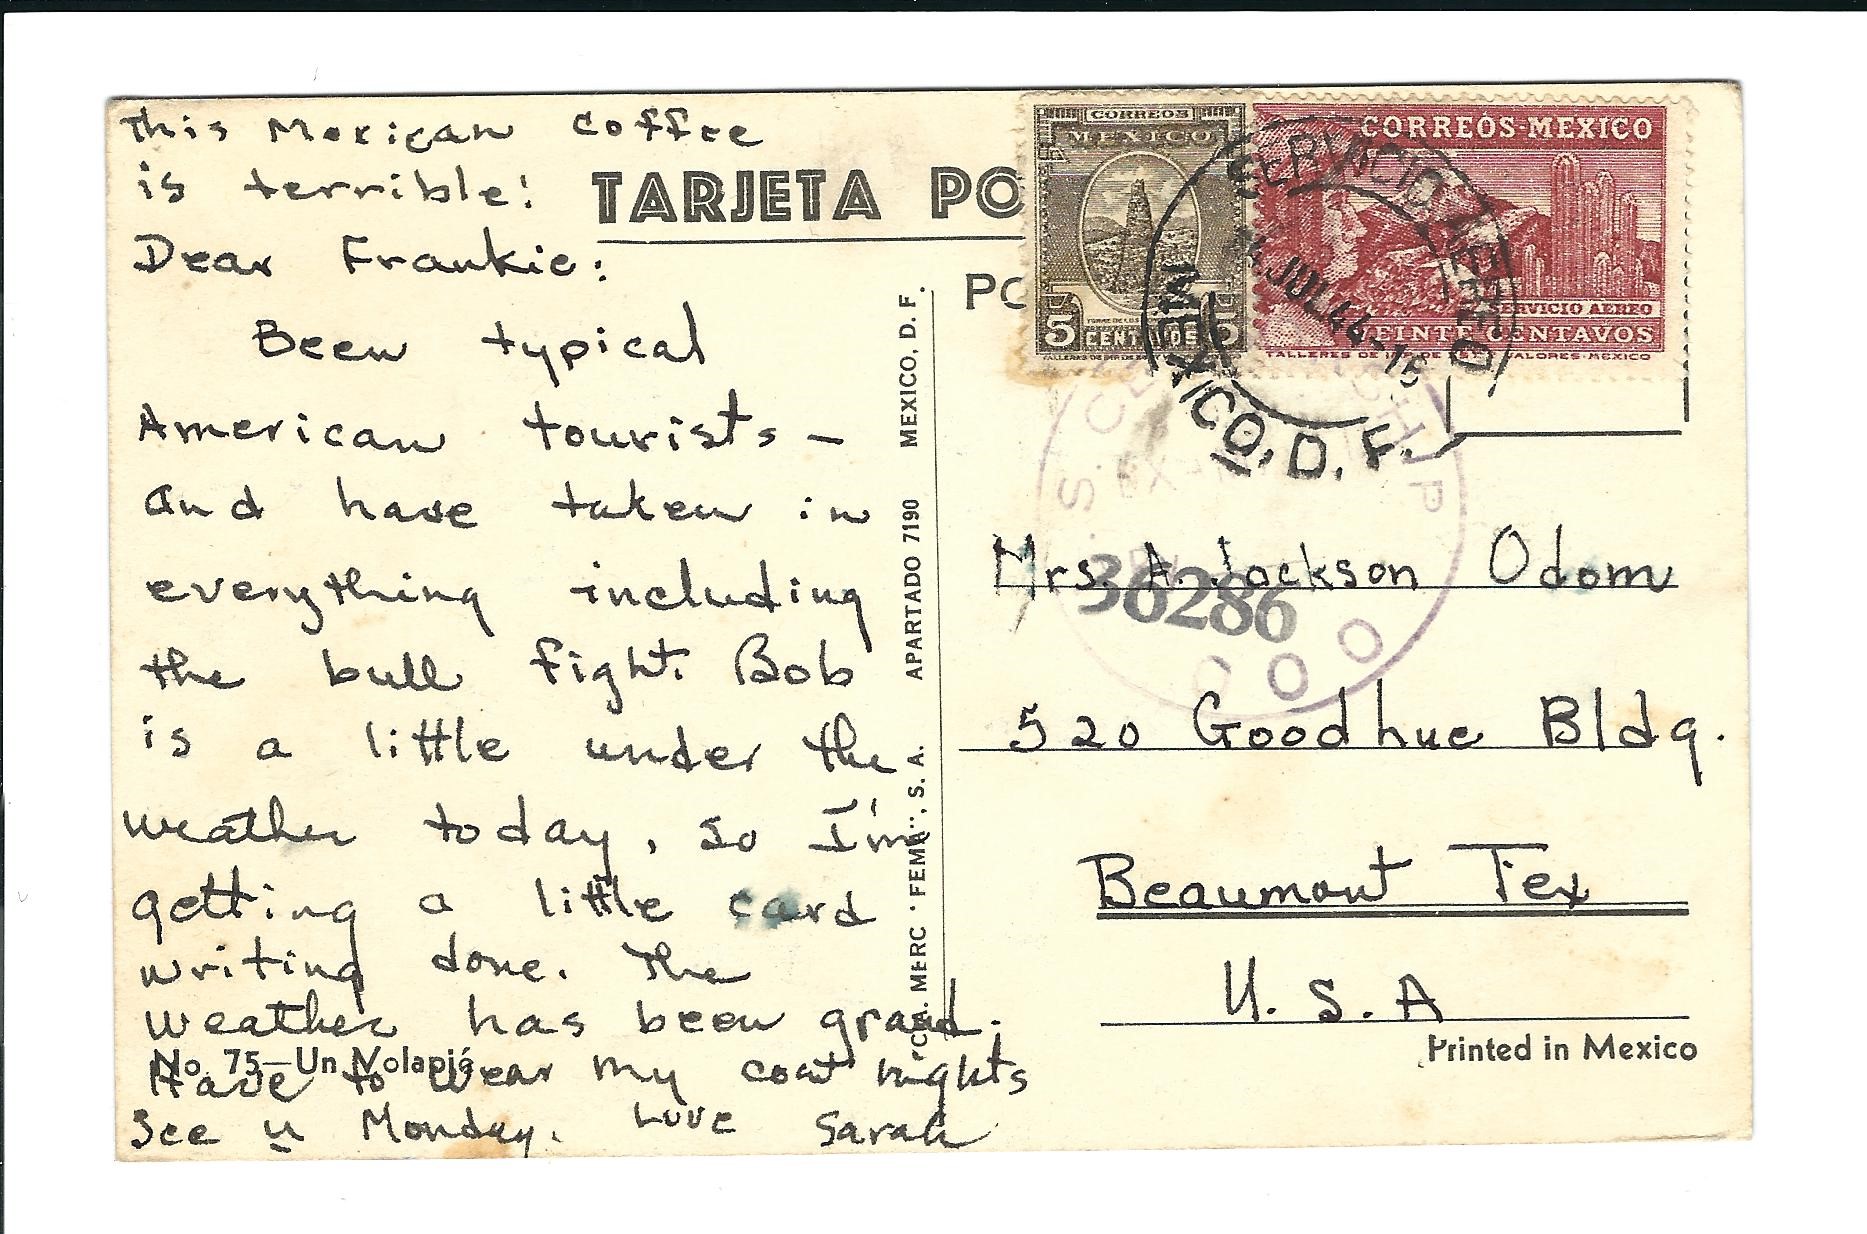 This Mexican coffee
is terrible!
Dear Frankie:
Been typical
American tourists –
and have taken in
everything including
the bull fight. Bob
is a little under the
weather today, so I'm
getting a little card
writing done. The
weather has been grand.
Have to wear my coat nights
See u Monday. Love Sarah
No. 75—Un Volapié
TARJETA PO
PO
CIA. MERC. "FEMA", S. A. APARTADO 7190 MEXICO, D. F.
CORREOS
MEXICO
5 CENTAVOS 5
TALLERES DE
CORREOS-MEXICO
SERVICIO AEREO
VEINTE CENTAVOS
TALLERES DE IMP. DE EST. Y VALORES-MEXICO
SERVICIO AEREO
JUL 44-16
MEXICO, D. F.
U. S. CENSORSHIP
EXAMINED
BY
36286
Mrs. A. Jackson Odom
520 Goodhue Bldg.
Beaumont Tex
U. S. A
Printed in Mexico